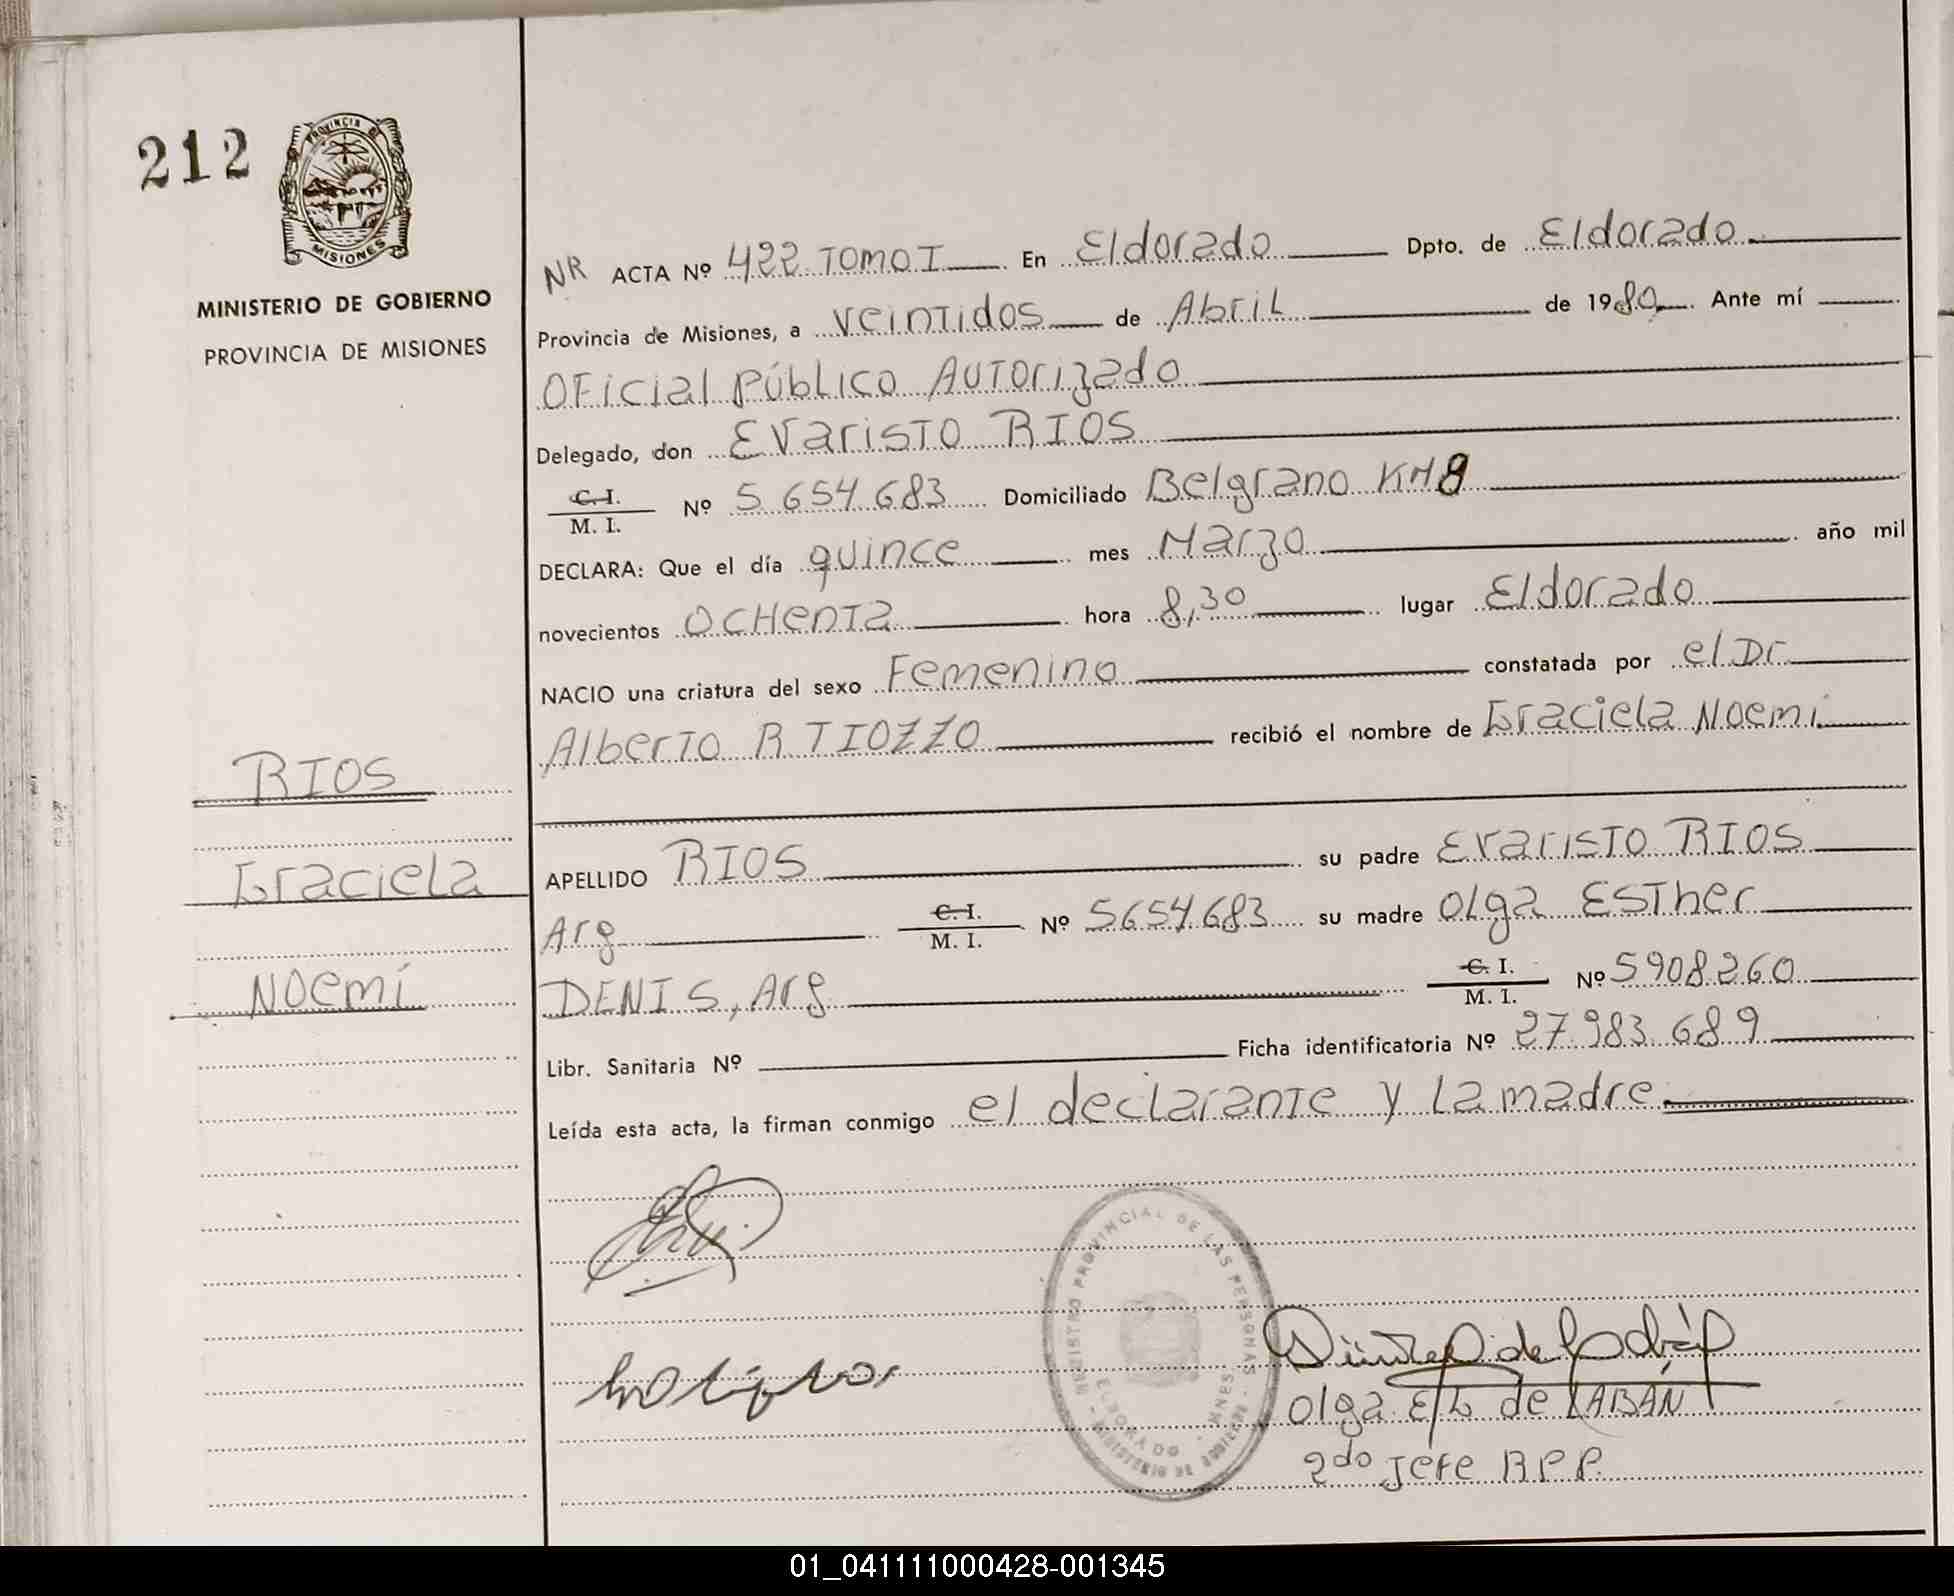 212
PROVINCIA DE
MISIONES
MINISTERIO DE GOBIERNO
PROVINCIA DE MISIONES
RIOS
Graciela
Noemí
NR ACTA Nº 422 TOMO I En Eldorado Dpto. de Eldorado
Provincia de Misiones, a veintidos de Abril de 1980 Ante mí
Oficial Público Autorizado
Delegado, don Evaristo RIOS
C. I.
M. I. Nº 5.654.683 Domiciliado Belgrano KM 8
DECLARA: Que el día quince mes Marzo año mil
novecientos ochenta hora 8,30 lugar Eldorado
NACIO una criatura del sexo Femenino constatada por el Dr
Alberto R TIOZZO recibió el nombre de Graciela Noemí
APELLIDO RIOS su padre Evaristo RIOS
Arg C. I.
M. I. Nº 5654.683 su madre Olga Esther
DENIS, Arg C. I.
M. I. Nº 5908.260
Libr. Sanitaria Nº Ficha identificatoria Nº 27.983.689
Leída esta acta, la firman conmigo el declarante y la madre
REGISTRO PROVINCIAL DE LAS PERSONAS
ELDORADO MNES.
MINISTERIO DE GOBIERNO
Olga de LABÁN
2do Jefe RPP
01_041111000428-001345